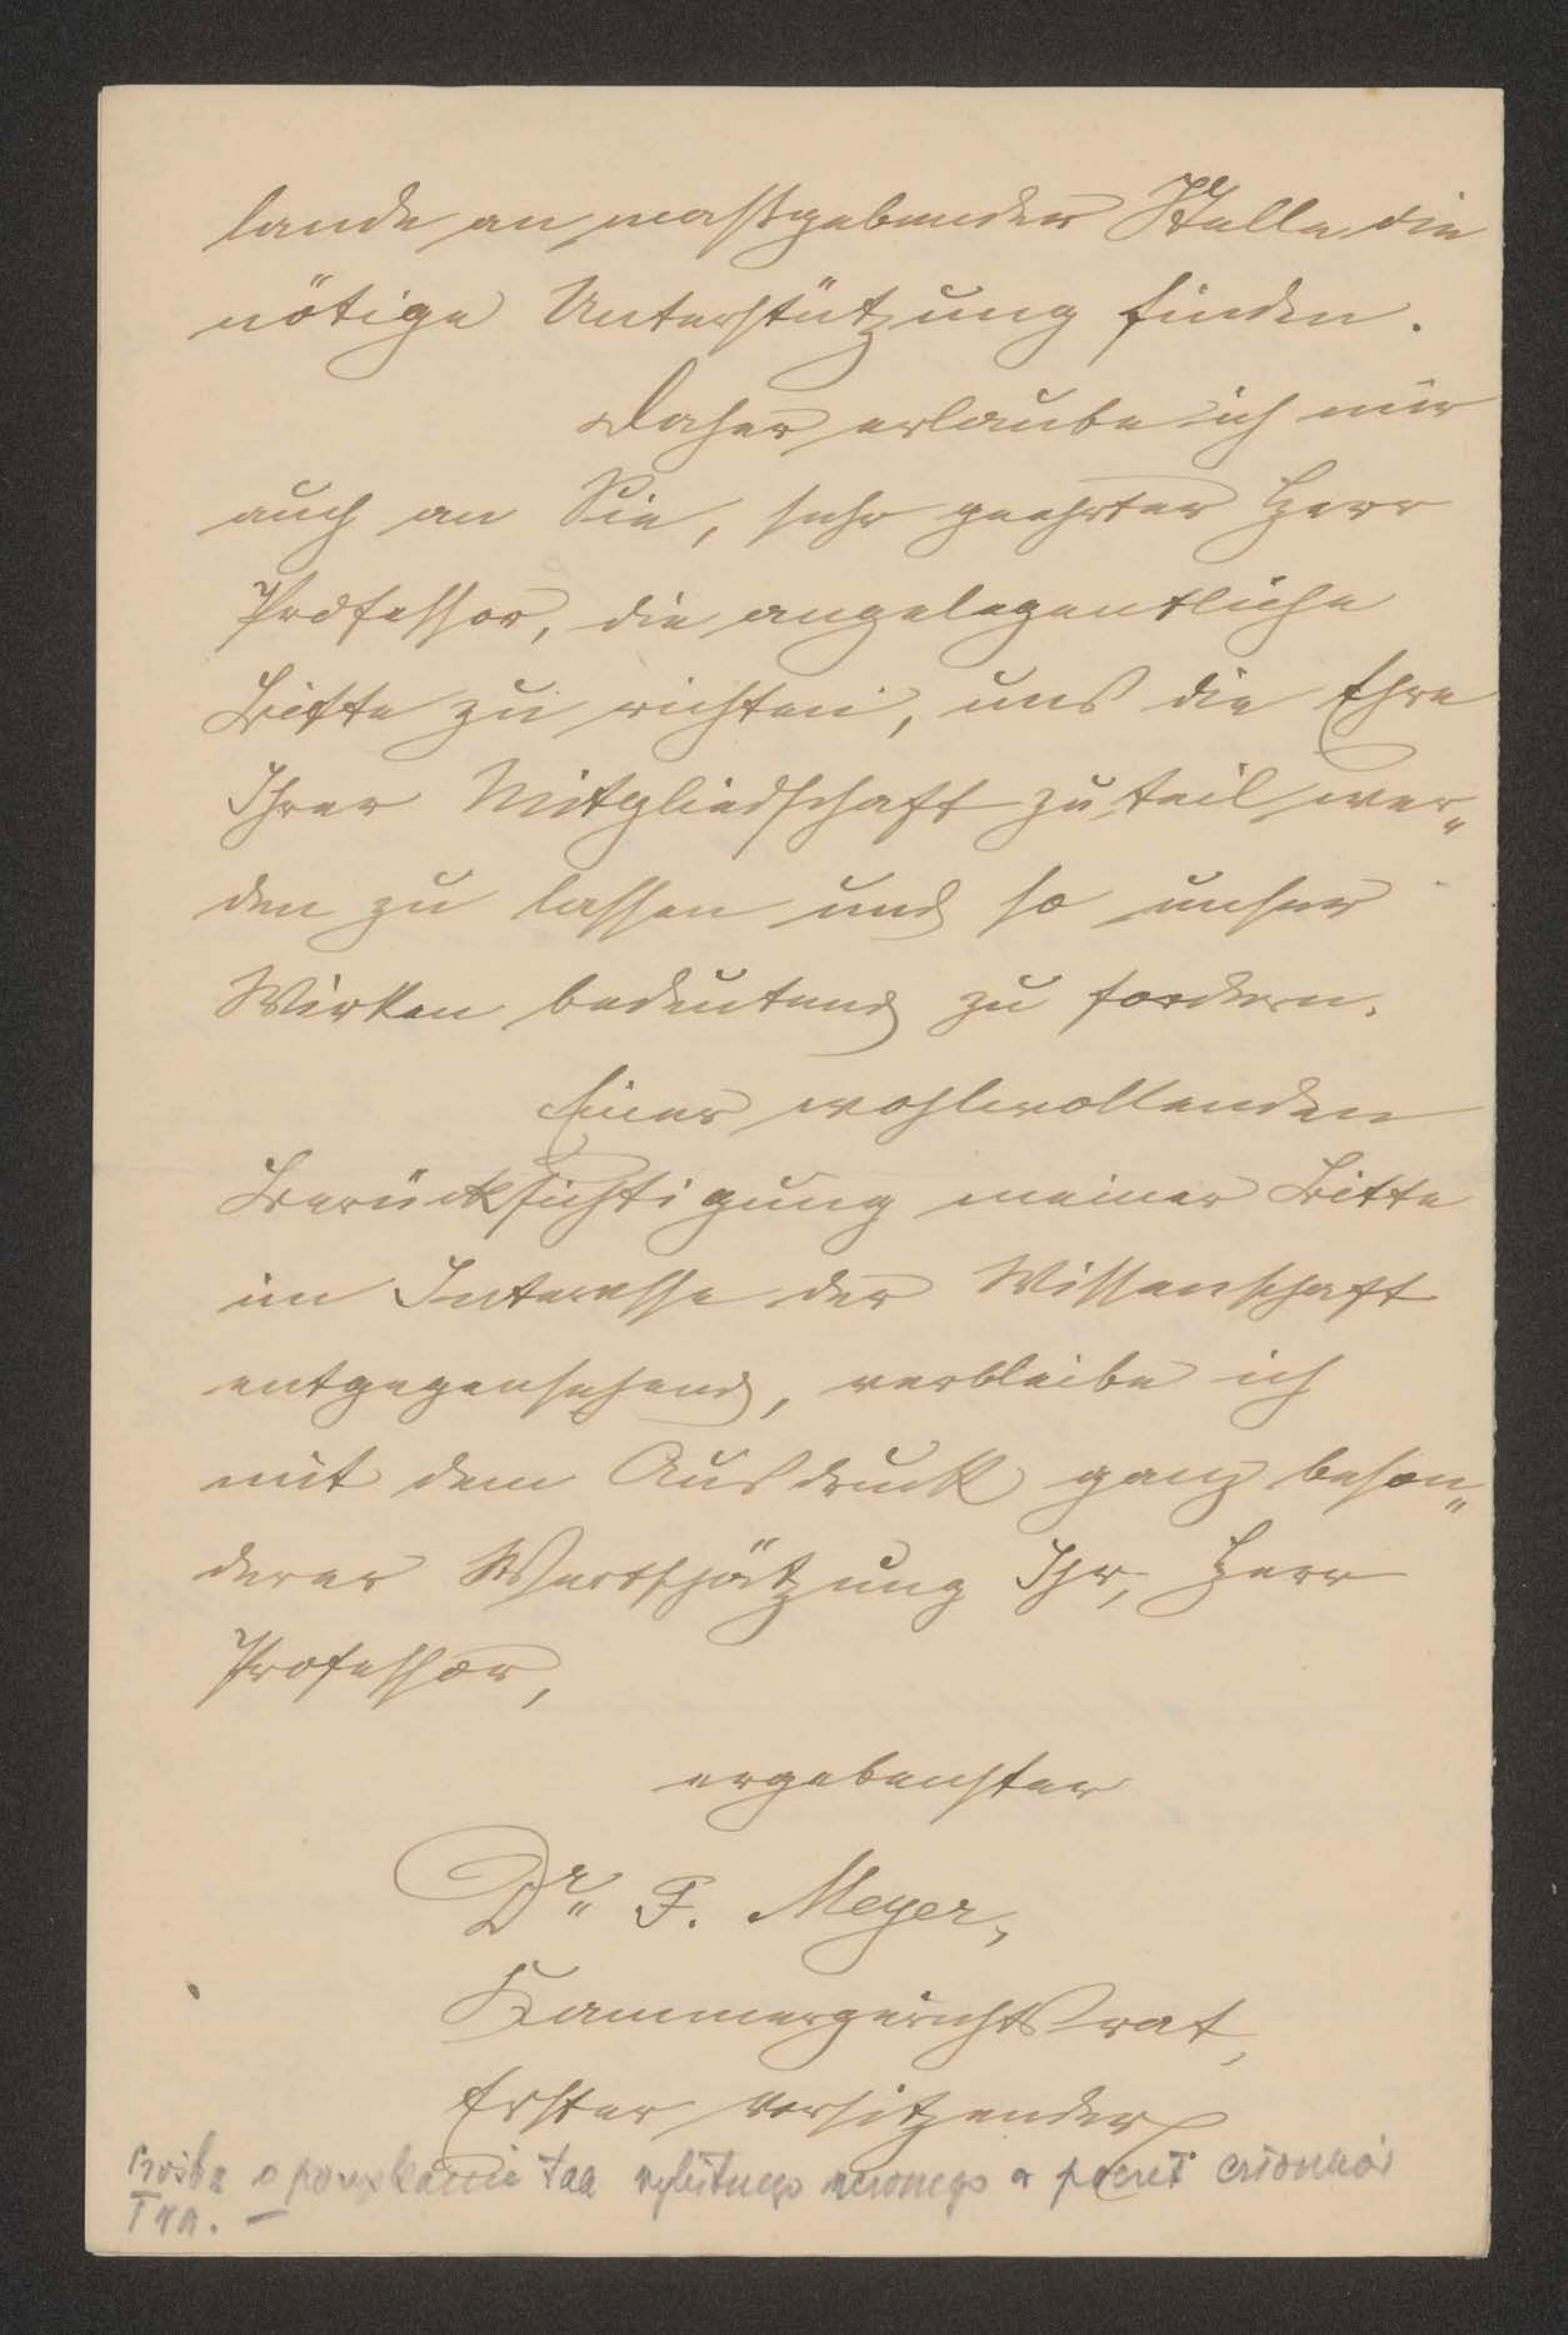 lande an massgebender Stelle die
nötige Unterstützung finden.
Daher erlaube ich mir
auch an Sie, sehr geehrter Herr
Professor, die angelegentliche
Bitte zu richten, uns die Ehre
Ihrer Mitgliedschaft zu teil wer„
den zu lassen und so unser
Wirken bedeutend zu fördern.
Einer wohlwollenden
Berücksichtigung meiner Bitte
im Interesse der Wissenschaft
entgegensehend, verbleibe ich
mit dem Ausdruck ganz beson„
derer Wertschätzung Ihr, Herr
Professor,
ergebenster
Dr. F. Meyer,
Kammergerichtsrat,
Erster Vorsitzender
Prośba o pozyskanie tak wybitnego uczonego w poczet członków
Twa. –